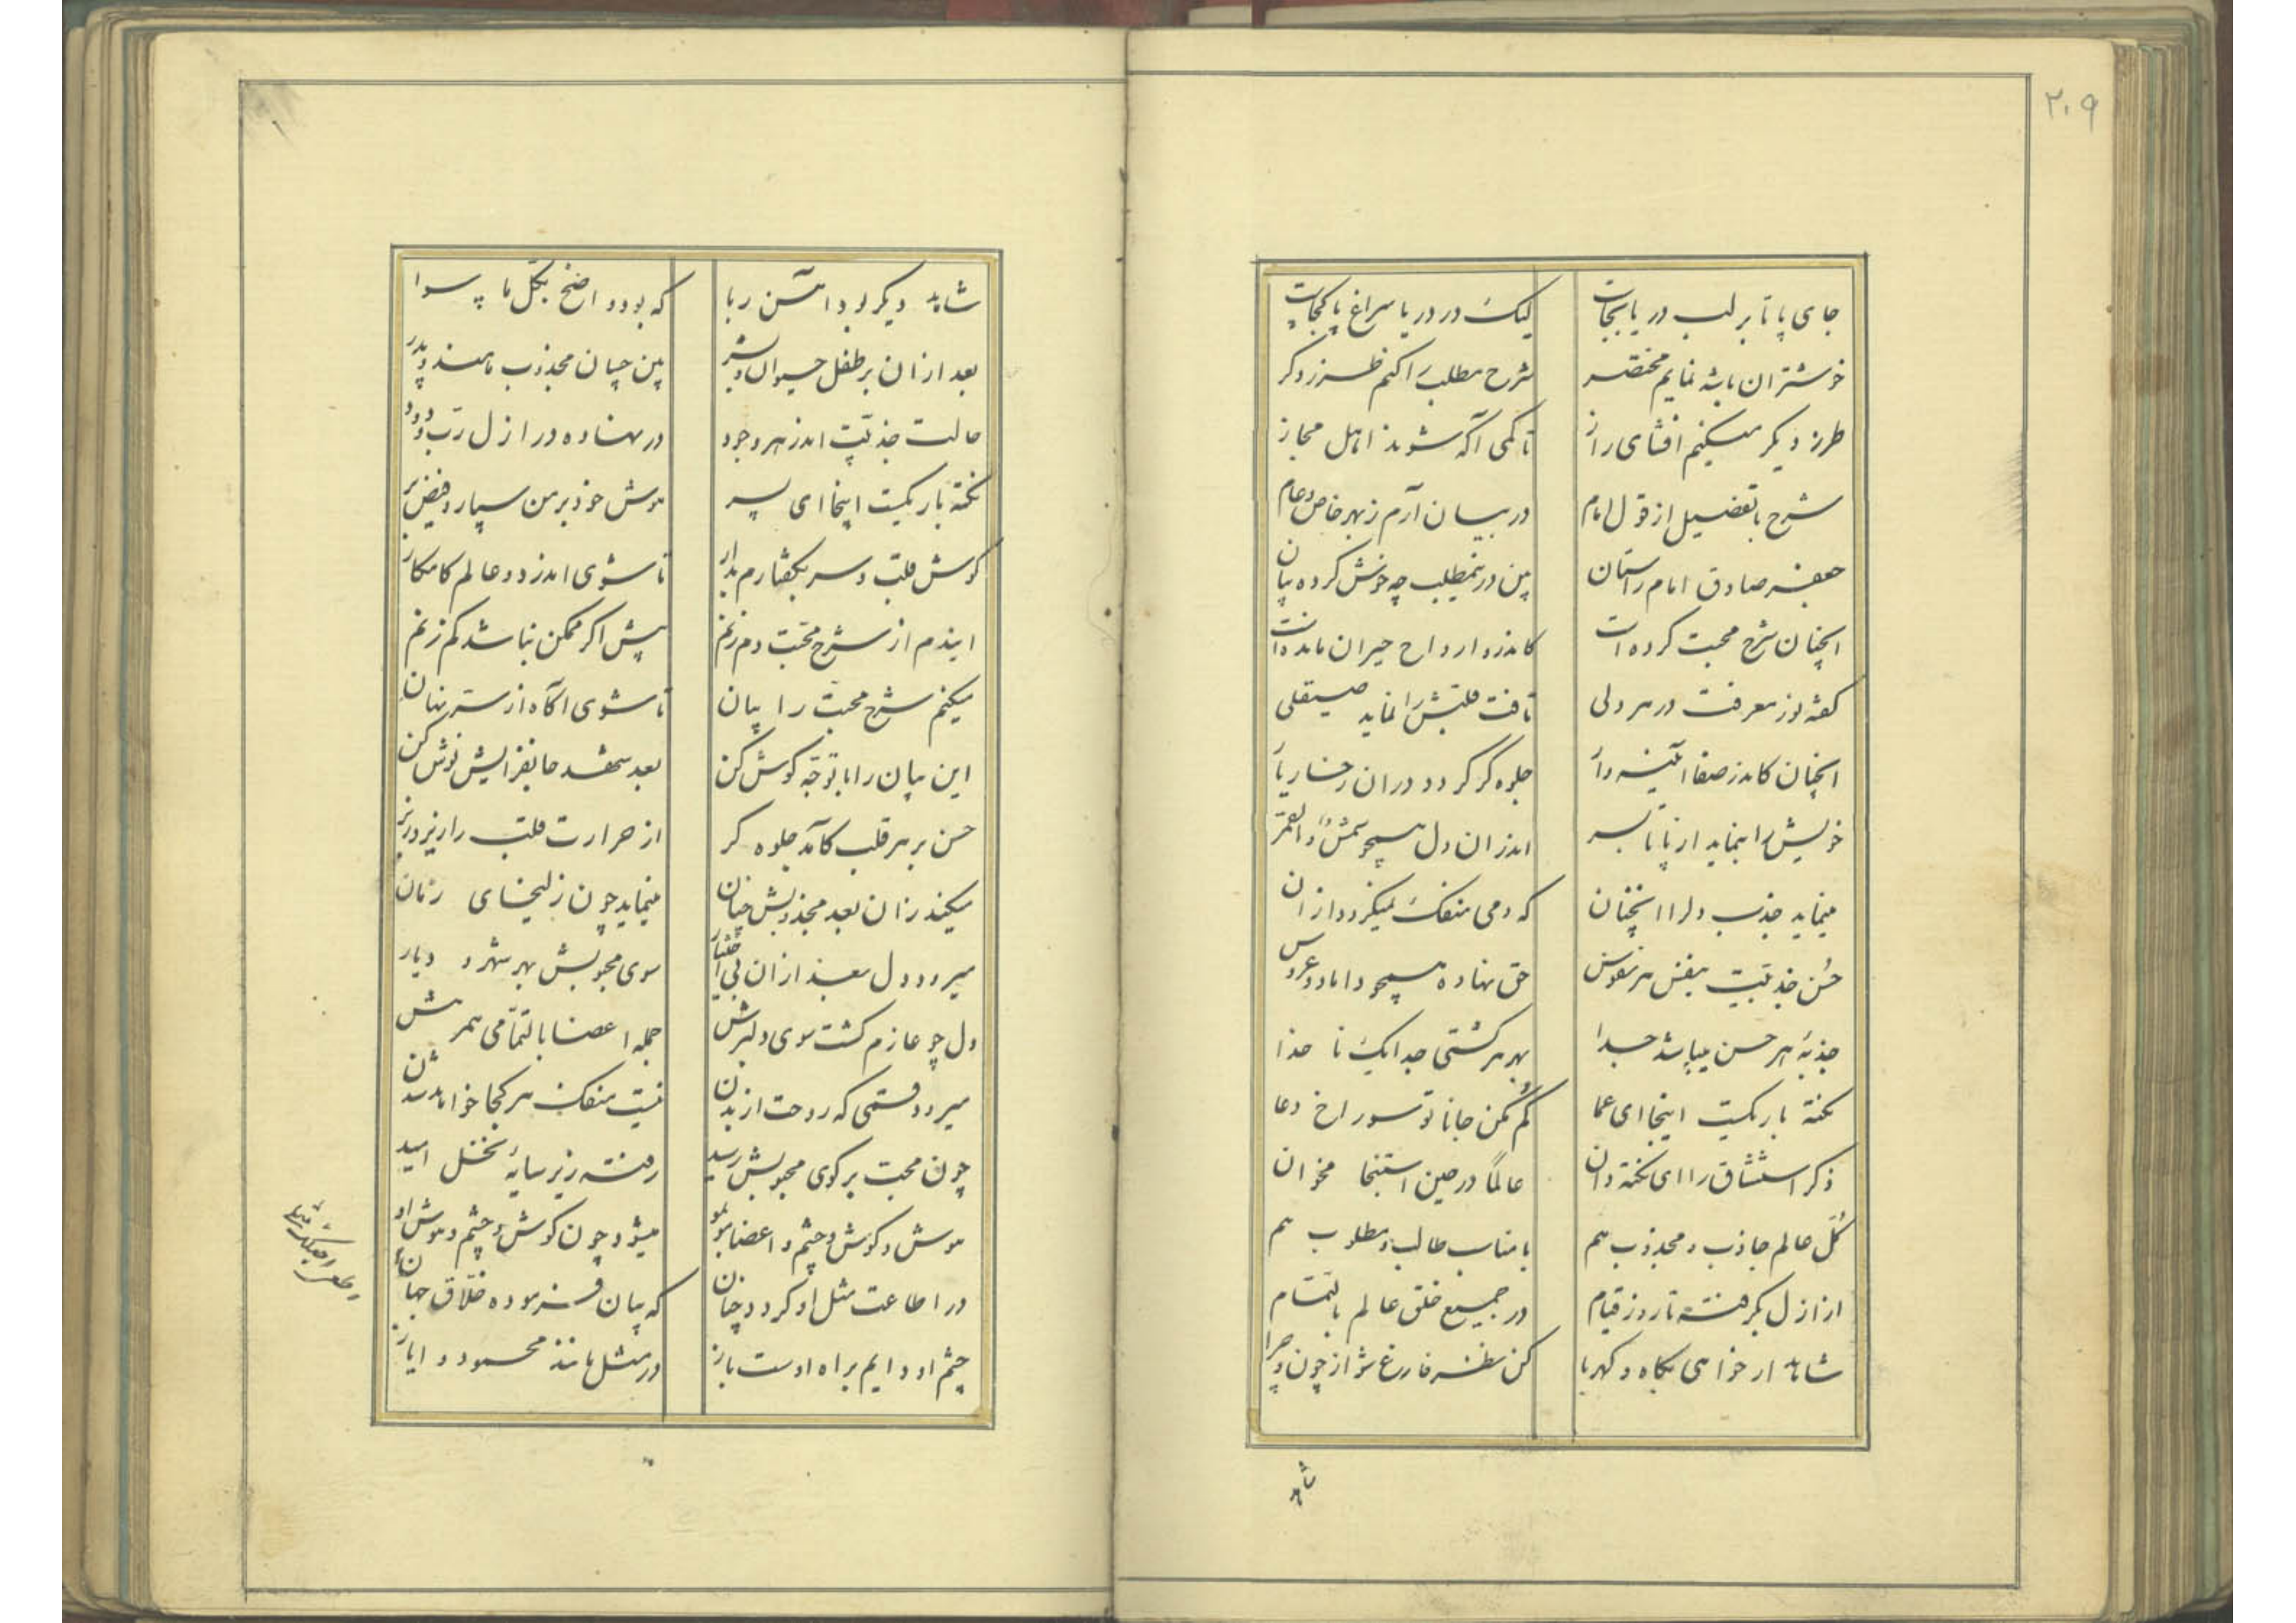 ۲۰۹
جای پا تا بر لب دریا بجاست لیک در دریا سراغ پا کجاست
خوشتر ان باشد نمایم مختصر شرح مطلب را کنم طرز دکر
طرز دیکر میکنم افشای راز تا کمی آکه شوند اهل مجاز
شرح با تفضیل از قول امام در بیان آرم ز بهر خاص و عام
جعفر صادق امام راستان بین درینمطلب چه خوش کرده بیان
انچنان شرح محبت کرده است کاندرو ارواح حیران مانده است
کفته نور معرفت در هر دلی تافت قلبش را نماید صیقلی
انچنان کاندر صفا آئینه وار جلوه کر کردد دران رخسار یار
خویش را بنماید از پا تا بسر اندران دل همچو شمس و القمر
مینماید جذب دلرا انچنان که دمی منفک نمیکردد ازان
حسن جذبیت بنفس هر نفوس حق نهاده همچو داماد و عروس
جذبهٔ هر حسن میباشد جدا بهر هر کشتی جدا یک نا خدا
نکتهٔ باریکیست اینجا ای عما کم مکن جانا تو سوراخ دعا
ذکر استنشاق را ای نکته دان عالماً در حین استنجا مخوان
کل عالم جاذب و مجذوب هم با مناسب طالب و مطلوب هم
از ازل بکرفته تا روز قیام در جمیع خلق عالم بالتمام
شاهد ار خواهی بکاه و کهربا کن نظر فارغ شو از چون و چرا
شاهد
شاهد دیکر بود آهن ربا که بود واضح بکل ما سوا
بعد ازان بر طفل حیوان و بشر بین چسان مجذوب مامند و پدر
حالت جذبیت اندر هر وجود در نهاده در ازل رب ودود
نکتهٔ باریکیست اینجا ای پسر هوش خود بر من سپار و فیض بر
کوش قلب و سر بکفتارم بدار تا شوی اندر دو عالم کامکار
ایندم از شرح محبت دم زنم بیش اکر ممکن نباشد کم زنم
میکنم شرح محبت را بیان تا شوی آکاه از سر نهان
این بیان را با توجه کوش کن بعد شهد جانفزایش نوش کن
حسن بر هر قلب کآمد جلوه کر از حرارت قلب را زیر و زبر
میکند زان بعد مجذوبش چنان مینماید چون زلیخای زمان
میرود دل بعد ازان بی اختیار سوی محبوبش بهر شهر و دیار
دل چو عازم کشت سوی دلبرش جمله اعضا بالتمامی همرهش
میرود قسمی که روحت از بدن نیست منفک هر کجا خواهد شدن
چون محبت بر کوی محبوبش رسید رفته زیر سایهٔ نخل امید
هوش و کوش و چشم و اعضا مو بمو میشود چون کوش و چشم و هوش او
در اطاعت مثل او کردد چنان که بیان فرموده خلاق جهان
چشم او دایم براه اوست باز در مثل مانند محمود و ایاز